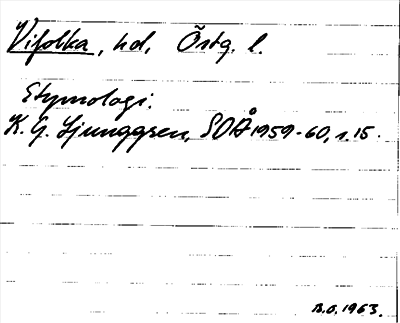 Vifolka, hd, Östg. l.
Etymologi.
K. G. Ljunggren, SOÅ 1959-60, s. 15.
B.O. 1963.